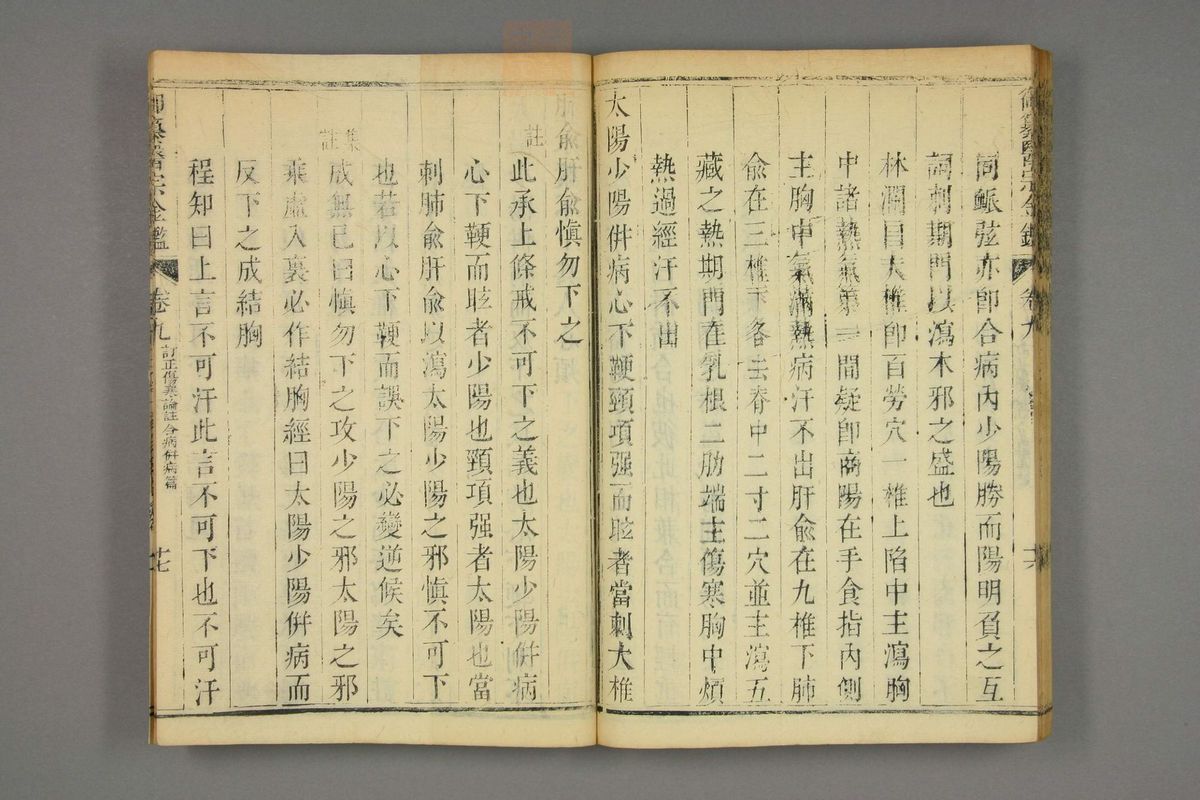 御纂醫宗金鑑 卷九
同脈弦亦卽合病內少陽勝而陽明負之互
詞刺期門以瀉木邪之盛也
林瀾曰大椎卽百勞穴一椎上陷中主瀉胸
中諸熱氣第一間疑卽商陽在手食指內側
主胸中氣滿熱病汗不出肝兪在九椎下肺
兪在三椎下各去脊中二寸二穴並主瀉五
藏之熱期門在乳根二肋端主傷寒胸中煩
熱過經汗不出
太陽少陽併病心下鞕頸項强而眩者當刺大椎
肺兪肝兪愼勿下之
註 此承上條戒不可下之義也太陽少陽併病
心下鞕而眩者少陽也頸項强者太陽也當
刺肺兪肝兪以瀉太陽少陽之邪愼不可下
也若以心下鞕而誤下之必變逆候矣
集註 成無已曰愼勿下之攻少陽之邪太陽之邪
乘虛入裏必作結胸經曰太陽少陽併病而
反下之成結胸
程知曰上言不可汗此言不可下也不可汗
御纂醫宗金鑑 卷九 訂正傷寒論註合病併病篇 十七